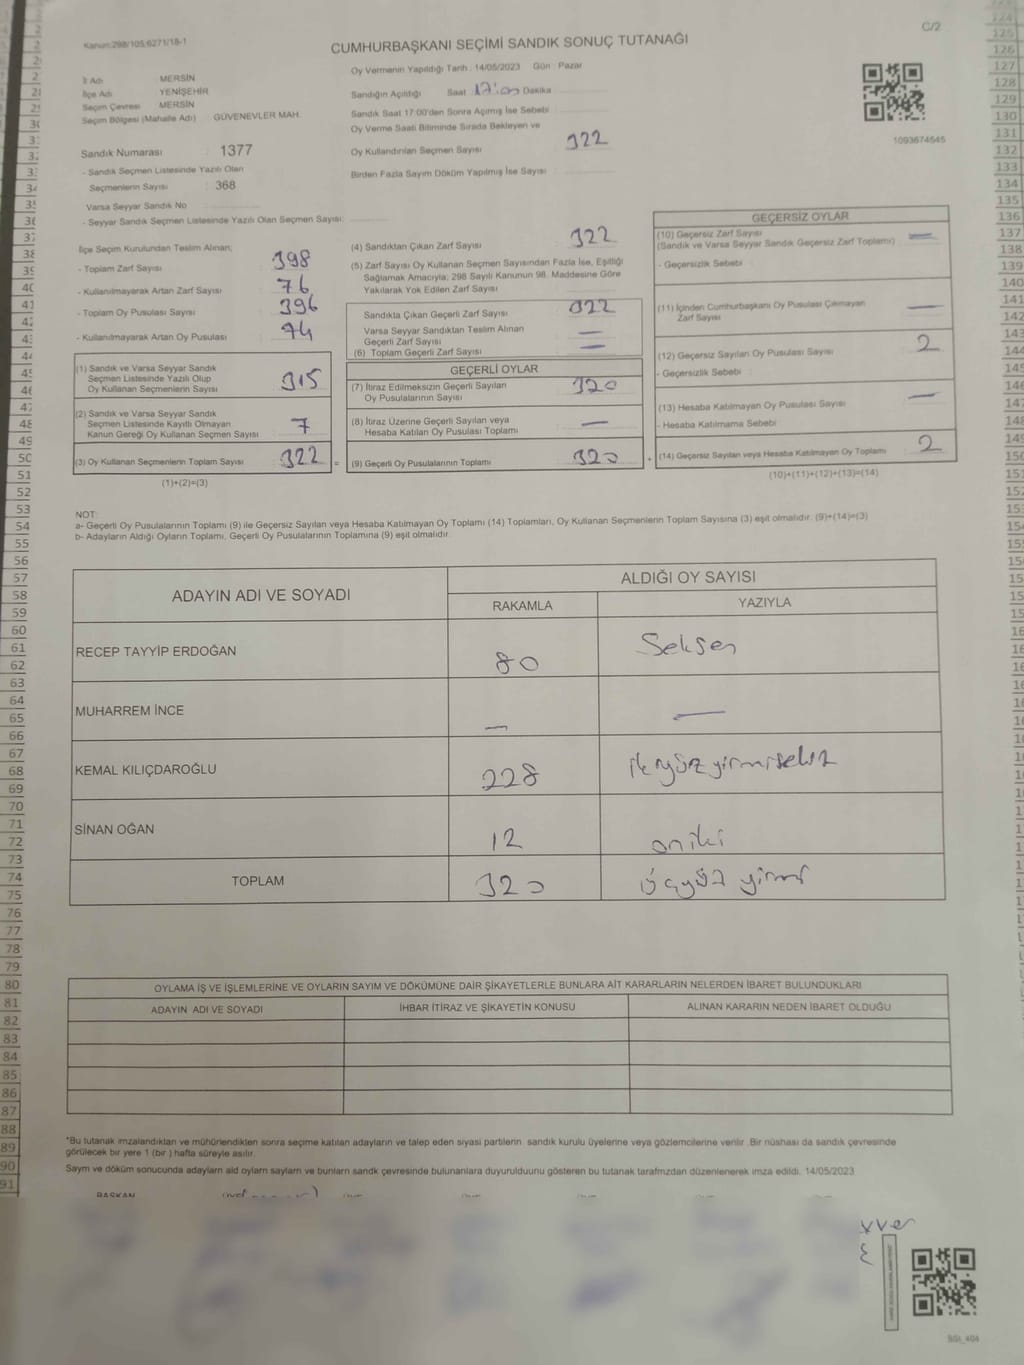 C/2
Kanun:298/105,6271/18-1
CUMHURBAŞKANI SEÇİMİ SANDIK SONUÇ TUTANAĞI
İl Adı MERSİN
İlçe Adı YENİŞEHİR
Seçim Çevresi MERSİN
Seçim Bölgesi (Mahalle Adı) GÜVENEVLER MAH.
Sandık Numarası : 1377
- Sandık Seçmen Listesinde Yazılı Olan
Seçmenlerin Sayısı : 368
Varsa Seyyar Sandık No
- Seyyar Sandık Seçmen Listesinde Yazılı Olan Seçmen Sayısı:
Oy Vermenin Yapıldığı Tarih : 14/05/2023 Gün : Pazar
Sandığın Açıldığı Saat 17:00 Dakika
Sandık Saat 17:00'den Sonra Açımış İse Sebebi
Oy Verme Saati Bitiminde Sırada Bekleyen ve
Oy Kullandırılan Seçmen Sayısı 322
Birden Fazla Sayım Döküm Yapılmış İse Sayısı
1093674545
İlçe Seçim Kurulundan Teslim Alınan;
- Toplam Zarf Sayısı 398
- Kullanılmayarak Artan Zarf Sayısı : 76
- Toplam Oy Pusulası Sayısı 396
- Kullanılmayarak Artan Oy Pusulası : 74
(1) Sandık ve Varsa Seyyar Sandık
Seçmen Listesinde Yazılı Olup
Oy Kullanan Seçmenlerin Sayısı 315
(2) Sandık ve Varsa Seyyar Sandık
Seçmen Listesinde Kayıtlı Olmayan
Kanun Gereği Oy Kullanan Seçmen Sayısı 7
(3) Oy Kullanan Seçmenlerin Toplam Sayısı 322
(1)+(2)=(3)
(4) Sandıktan Çıkan Zarf Sayısı 322
(5) Zarf Sayısı Oy Kullanan Seçmen Sayısından Fazla İse, Eşitliği
Sağlamak Amacıyla; 298 Sayılı Kanunun 98. Maddesine Göre
Yakılarak Yok Edilen Zarf Sayısı
Sandıkta Çıkan Geçerli Zarf Sayısı 322
Varsa Seyyar Sandıktan Teslim Alınan
Geçerli Zarf Sayısı —
(6) Toplam Geçerli Zarf Sayısı —
GEÇERLİ OYLAR
(7) İtiraz Edilmeksizin Geçerli Sayılan
Oy Pusulalarının Sayısı 320
(8) İtiraz Üzerine Geçerli Sayılan veya
Hesaba Katılan Oy Pusulası Toplamı —
= (9) Geçerli Oy Pusulalarının Toplamı 320
GEÇERSİZ OYLAR
(10) Geçersiz Zarf Sayısı —
(Sandık ve Varsa Seyyar Sandık Geçersiz Zarf Toplamı)
- Geçersizlik Sebebi
(11) İçinden Cumhurbaşkanı Oy Pusulası Çıkmayan
Zarf Sayısı —
(12) Geçersiz Sayılan Oy Pusulası Sayısı 2
- Geçersizlik Sebebi
(13) Hesaba Katılmayan Oy Pusulası Sayısı —
- Hesaba Katılmama Sebebi
+ (14) Geçersiz Sayılan veya Hesaba Katılmayan Oy Toplamı 2
(10)+(11)+(12)+(13)=(14)
NOT:
a- Geçerli Oy Pusulalarının Toplamı (9) ile Geçersiz Sayılan veya Hesaba Katılmayan Oy Toplamı (14) Toplamları, Oy Kullanan Seçmenlerin Toplam Sayısına (3) eşit olmalıdır. (9)+(14)=(3)
b- Adayların Aldığı Oyların Toplamı, Geçerli Oy Pusulalarının Toplamına (9) eşit olmalıdır.
ADAYIN ADI VE SOYADI ALDIĞI OY SAYISI
RAKAMLA YAZIYLA
RECEP TAYYİP ERDOĞAN 80 Seksen
MUHARREM İNCE — —
KEMAL KILIÇDAROĞLU 228 ikiyüzyirmisekiz
SİNAN OĞAN 12 oniki
TOPLAM 320 üçyüz yirmi
OYLAMA İŞ VE İŞLEMLERİNE VE OYLARIN SAYIM VE DÖKÜMÜNE DAİR ŞİKAYETLERLE BUNLARA AİT KARARLARIN NELERDEN İBARET BULUNDUKLARI
ADAYIN ADI VE SOYADI İHBAR İTİRAZ VE ŞİKAYETİN KONUSU ALINAN KARARIN NEDEN İBARET OLDUĞU
*Bu tutanak imzalandıktan ve mühürlendikten sonra seçime katılan adayların ve talep eden siyasi partilerin sandık kurulu üyelerine veya gözlemcilerine verilir. Bir nüshası da sandık çevresinde
görülecek bir yere 1 (bir ) hafta süreyle asılır.
Saym ve döküm sonucunda adaylarn ald oylarn saylarn ve bunlarn sandk çevresinde bulunanlara duyurulduunu gösteren bu tutanak tarafmzdan düzenlenerek imza edildi. 14/05/2023
BAŞKAN